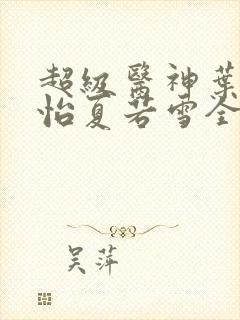 超級醫神葉
怡夏若雪全
吴萍